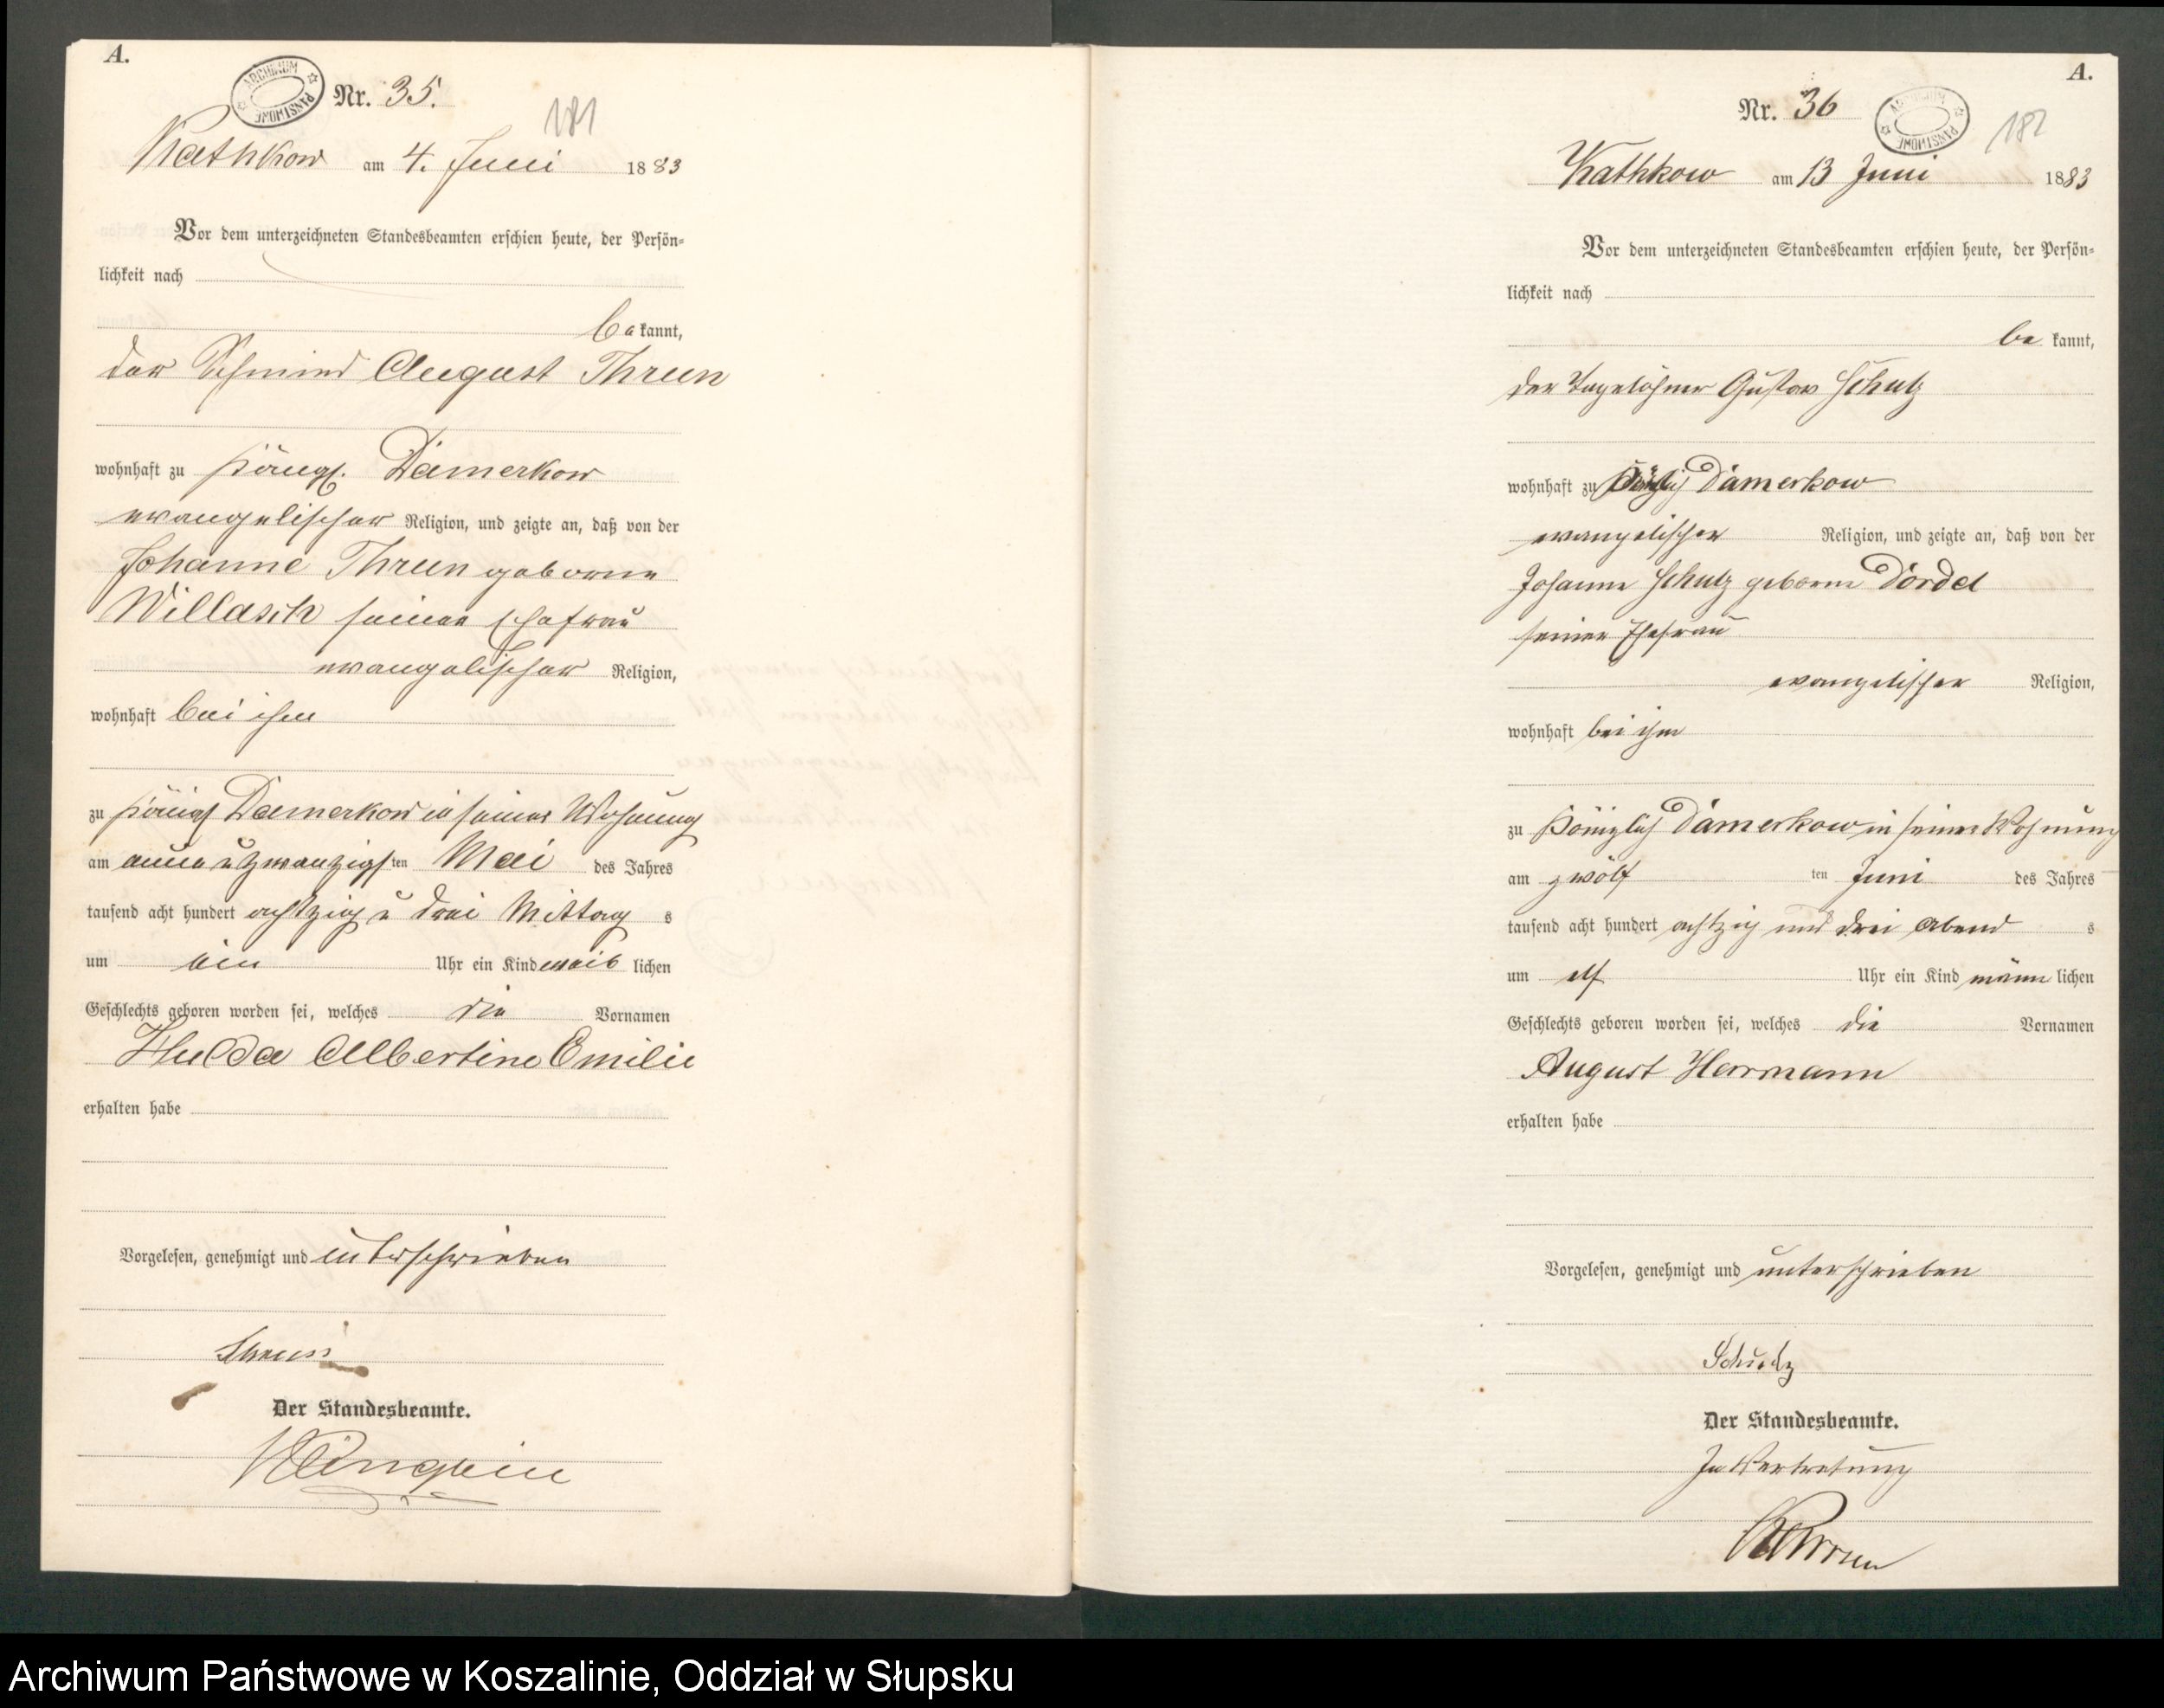 A.
ARCHIWUM PAŃSTWOWE
Nr. 35.
181
Rathkow am 4. Juni 1883
Vor dem unterzeichneten Standesbeamten erschien heute, der Persön-
lichkeit nach
bekannt,
der Schmied August Thrun
wohnhaft zu Königl. Damerkow
evangelischer Religion, und zeigte an, daß von der
Johanne Thrun geborne
Willasch seiner Ehefrau
evangelischer Religion,
wohnhaft bei ihm
zu Königl Damerkow in seiner Wohnung
am neun u zwanzigsten Mai des Jahres
tausend acht hundert achtzig u drei Mittags
um ein Uhr ein Kind weiblichen
Geschlechts geboren worden sei, welches die Vornamen
Hulda Albertine Emilie
erhalten habe
Vorgelesen, genehmigt und unterschrieben
Thrun
Der Standesbeamte.
A.
Nr. 36
ARCHIWUM PAŃSTWOWE
182
Rathkow am 13 Juni 1883
Vor dem unterzeichneten Standesbeamten erschien heute, der Persön-
lichkeit nach
bekannt,
der Tagelöhner Gustav Schulz
wohnhaft zu Königlich Damerkow
evangelischer Religion, und zeigte an, daß von der
Johanne Schulz geborne Dordel
seiner Ehefrau
evangelischer Religion,
wohnhaft bei ihm
zu Königlich Damerkow in seiner Wohnung
am zwölften Juni des Jahres
tausend acht hundert achtzig und drei Abends
um elf Uhr ein Kind männlichen
Geschlechts geboren worden sei, welches die Vornamen
August Herrmann
erhalten habe
Vorgelesen, genehmigt und unterschrieben
Der Standesbeamte.
In Vertretung
Archiwum Państwowe w Koszalinie, Oddział w Słupsku